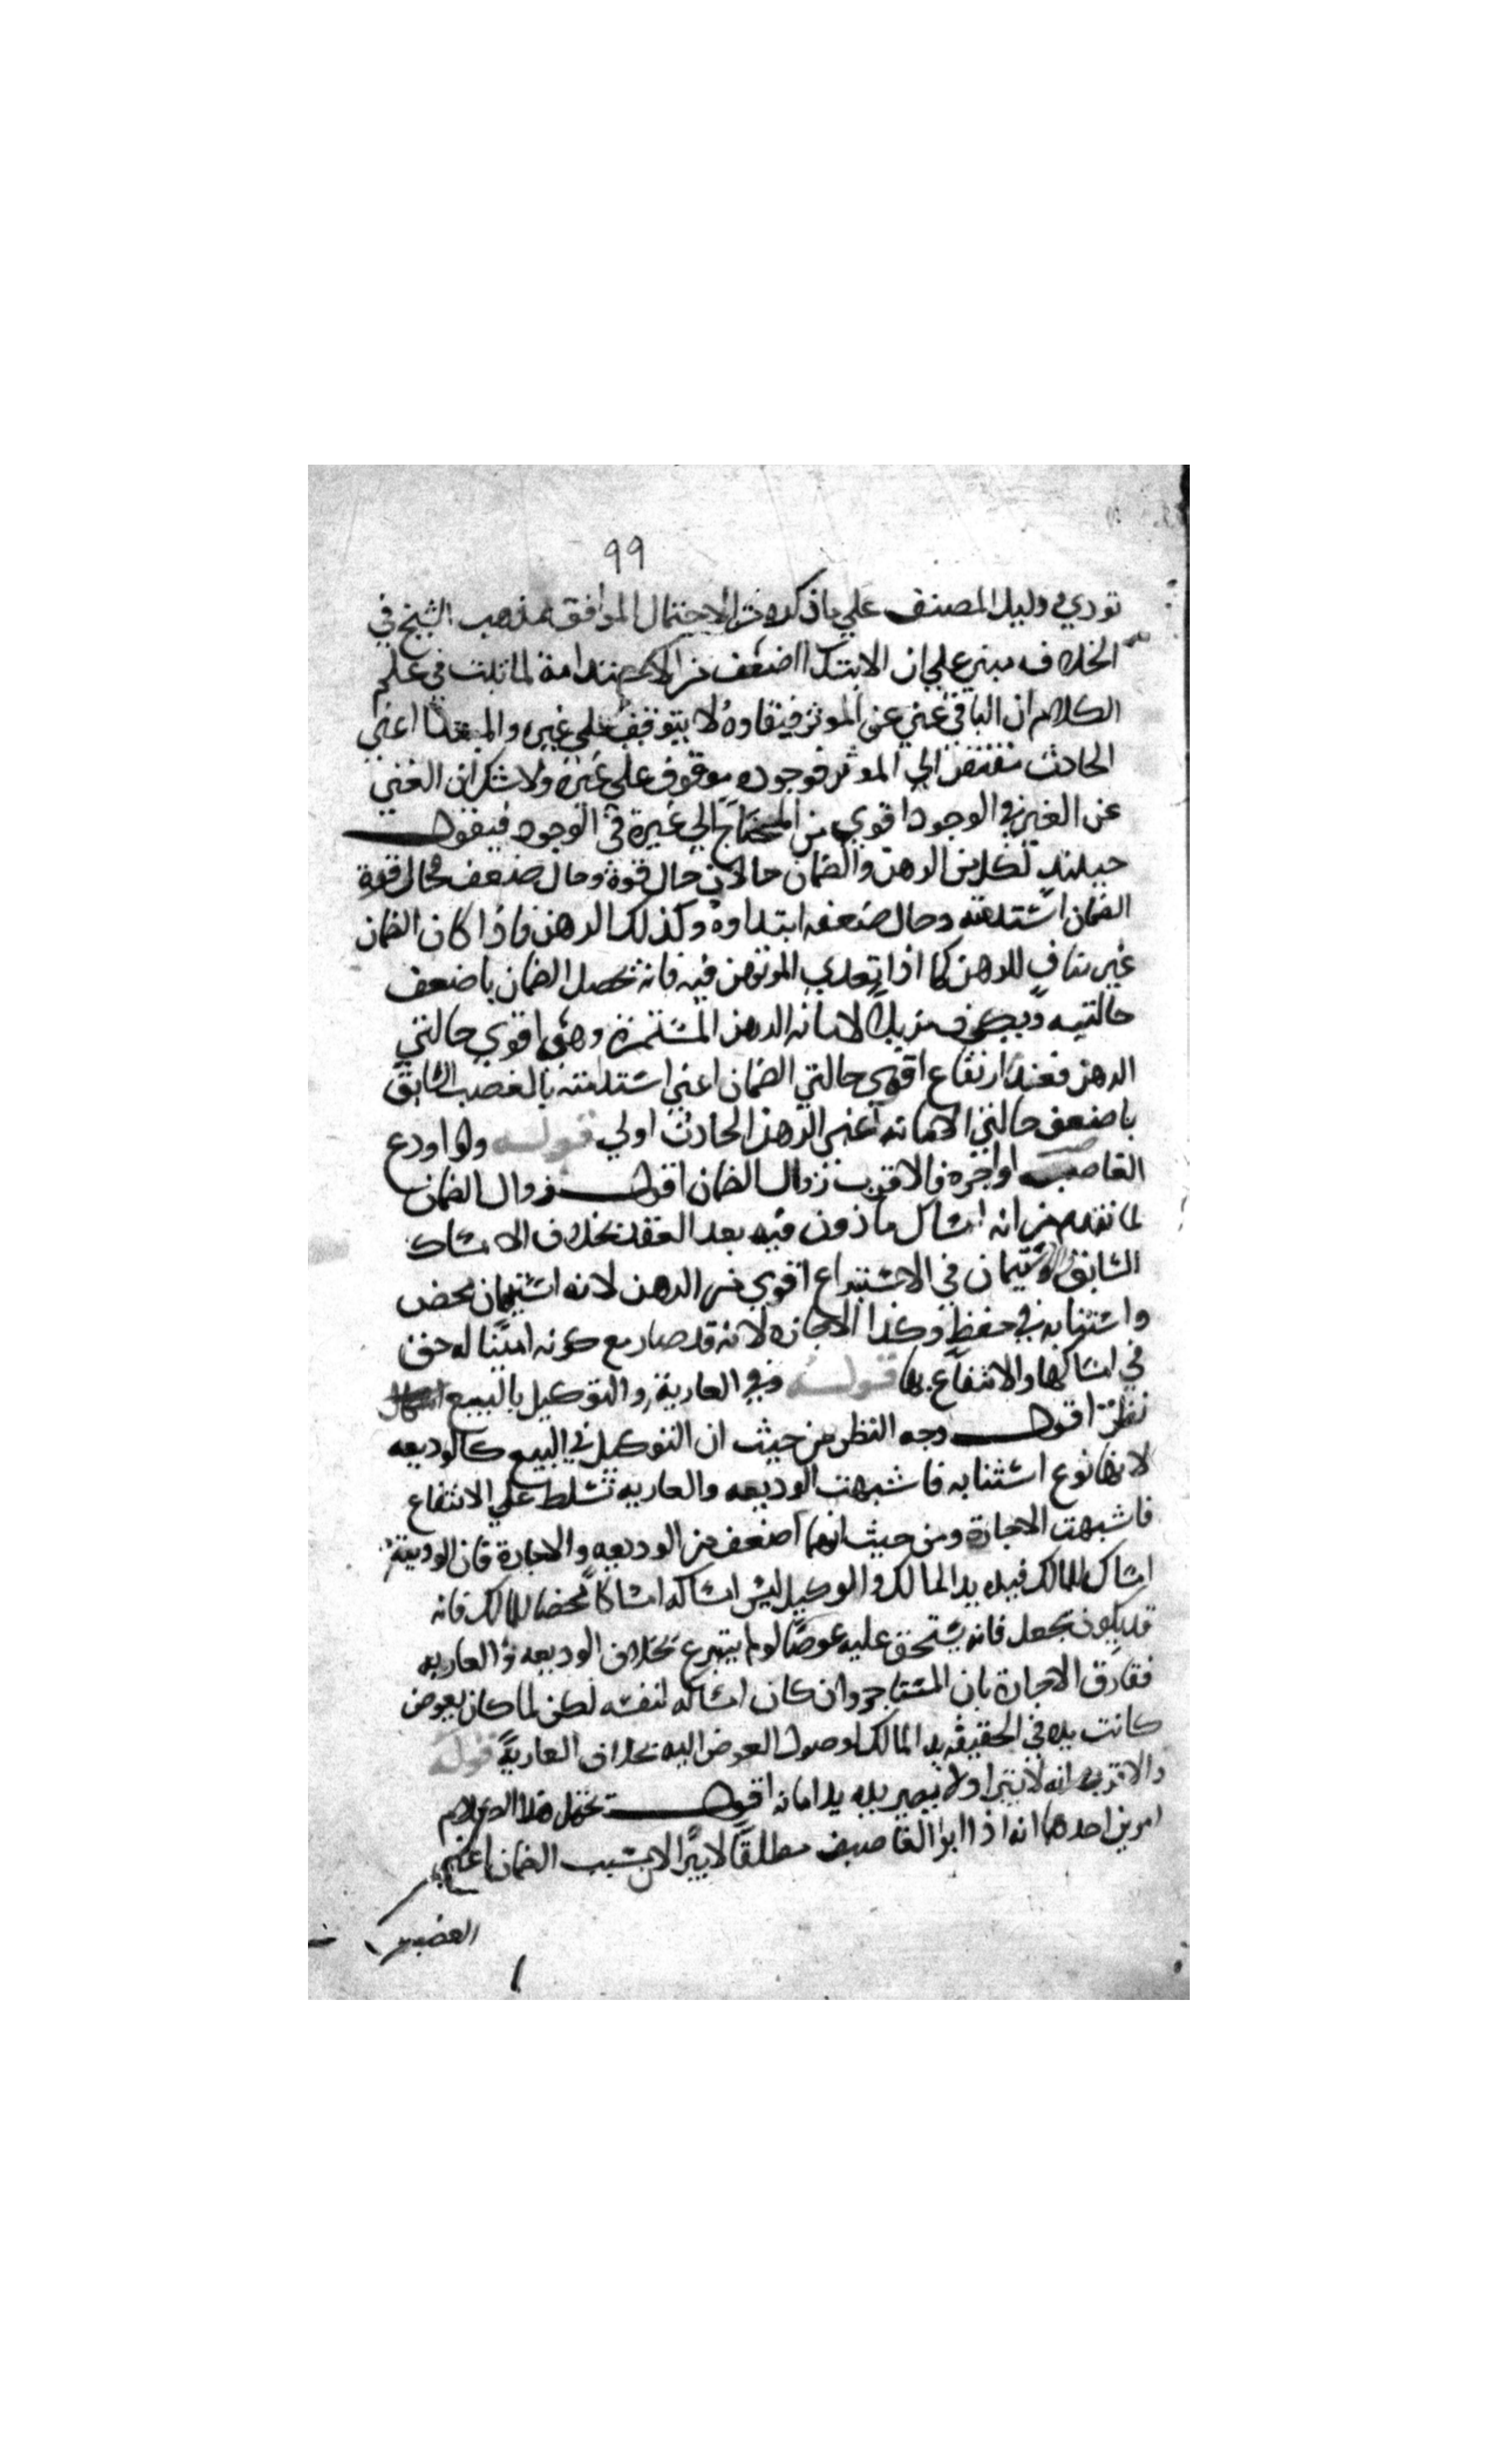 ٩٩
تودي ودليل المصنف علي ما ذكره من الاحتمال الموافق لمذهب الشيخ في
الخلاف مبني علي ان الابتدا اضعف من الاستدامة لما ثبت في علم
الكلام ان الباقي غني عن الموثر فبقاوه لا يتوقف علي غيره والمبتدا اعني
الحادث مفتقر الي الموثر فوجوده موقوف علي غيره ولا شك ان الغني
عن الغير في الوجود اقوي من المحتاج الي غيره في الوجود فيقول
حينئذ لكل من الرهن والضمان حالان حال قوة وحال ضعف فحال قوة
الضمان استدامته وحال ضعفه ابتداوه وكذلك الرهن فاذا كان الضمان
غير مناف للرهن كما اذا تعدي المرتهن فيه فانه يحصل الضمان باضعف
حالتيه و لامانه الرهن المستمرة وهي اقوي حالتي
الرهن فعند ارتفاع اقوي حالتي الضمان اعني استدامته بالغصب السابق
باضعف حالتي الامانه اعني الرهن الحادث اولي قوله ولو اودع
الغاصب او اجره فالاقرب زوال الضمان اقول زوال الضمان
لما تقدم من انه امساك ماذون فيه بعد العقد بخلاف الامساك
السابق والاستيمان في الاستيداع اقوي من الرهن لانه استيمان محض
واستنابه في حفظ وكذا الاجازه لانه قد صار مع كونه امينا له حق
في امساكها والانتفاع بها قوله وفي العارية والتوكيل بالبيع
نظر اقول وجه النظر من حيث ان التوكيل في البيع كالوديعه
لانها نوع استنابه فاشبهت الوديعه والعاريه تسلط علي الانتفاع
فاشبهت الاجارة ومن حيث انهما اضعف من الوديعه والاجارة فان الوديعة
امساك للمالك فيده يد المالك والوكيل ليس امساكه امساكا محضا للمالك فانه
قد يكون بجعل فانه يستحق عليه عوضا لو لم يتبرع بخلاف الوديعه والعاريه
فقارق الاجارة بان المستاجر وان كان امساكه لنفسه لكن لما كان بعوض
كانت يده في الحقيقه يد المالك لوصول العوض اليه بخلاف العارية قوله
والاقرب انه لا يبرا ولا تصير يده يد امانه اقول يحتمل هذا الكلام
امرين احدهما انه اذا ابرا الغاصب مطلقا لا يبرا لان سبب الضمان اعني
الغصب